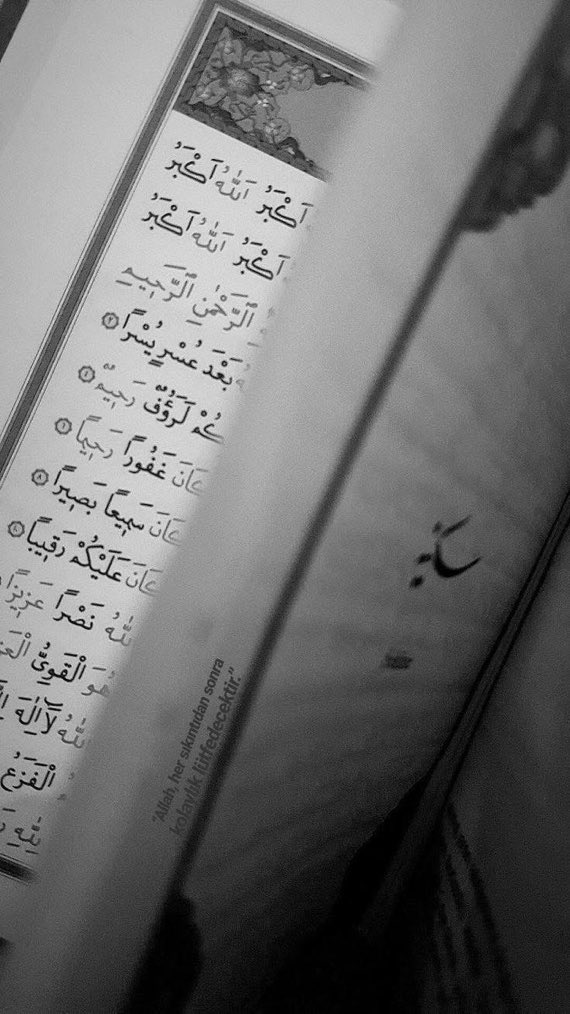 اَكْبَرُ اَللّٰهُ اَكْبَرُ
اَكْبَرُ اَللّٰهُ اَكْبَرُ
اَلرَّحْمٰنِ الرَّح۪يمِ
بَعْدَ عُسْرٍ يُسْرًا ﴿٢﴾
كُمْ لَرَؤُ۫فٌ رَح۪يمٌ ﴿٤﴾
كَانَ غَفُورًا رَح۪يمًا ﴿٦﴾
كَانَ سَم۪يعًا بَص۪يرًا ﴿٨﴾
كَانَ عَلَيْكُمْ رَق۪يبًا
اللّٰهُ نَصْرًا عَز۪يزًا
هُوَ الْقَوِيُّ
اللّٰهُ لَٓا اِلٰهَ
الْفَزَعُ
لِلّٰهِ
"Allah, her sıkıntıdan sonra
kolaylık lütfedecektir."